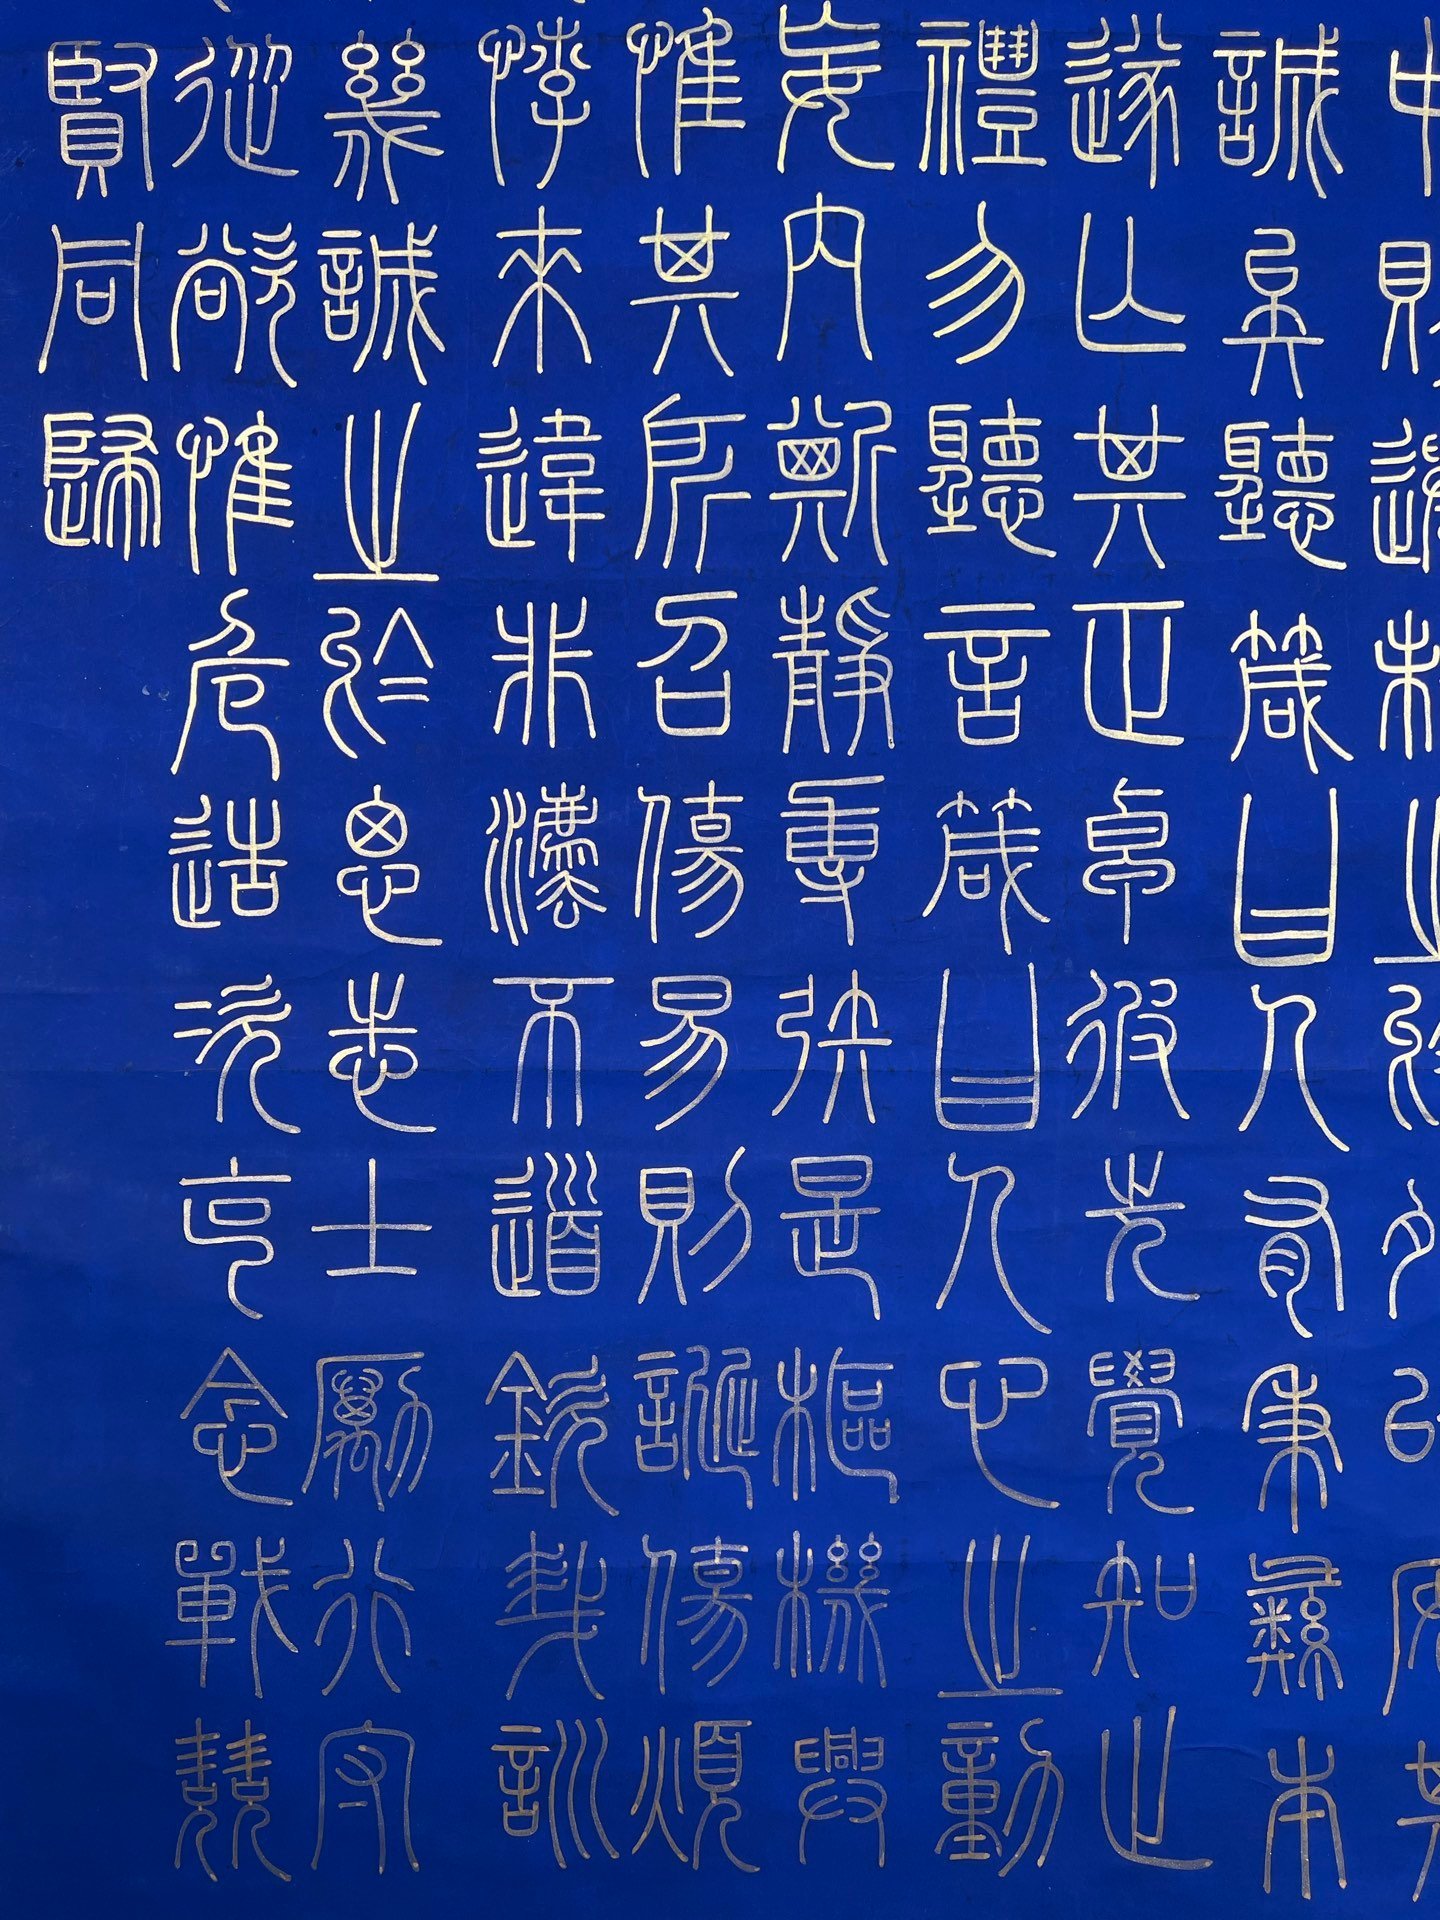 中則遷制之於外以安其
誠矣聽箴曰人有秉彝本
遂亡其正卓彼先覺知止
禮勿聽言箴曰人心之動
妄內斯靜專矧是樞機興
惟其所召傷易則誕傷煩
悖來違非灋不道欽哉訓
幾誠之於思志士勵行守
從欲惟危造次克念戰兢
賢同歸